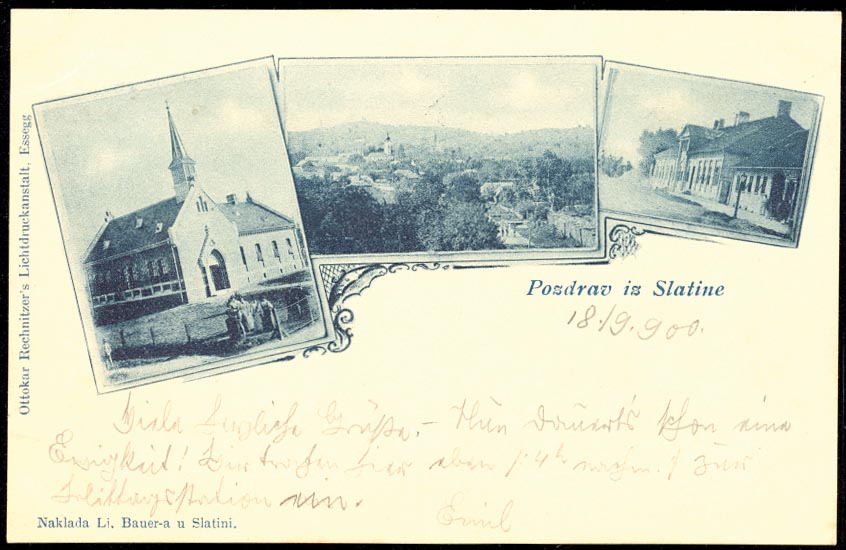 Ottokar Rechnitzer's Lichtdruckanstalt, Essegg
Pozdrav iz Slatine
18./9. 900.
Viele herzliche Grüße. – Nun dauert's schon eine
Ewigkeit! Wir trafen hier eben /: 4h nachm. :/ zur
station ein.
Emil
Naklada Li. Bauer-a u Slatini.